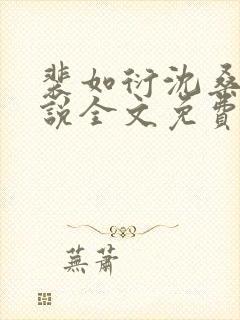 裴如衍沈桑
說全文免費
蕪蕭